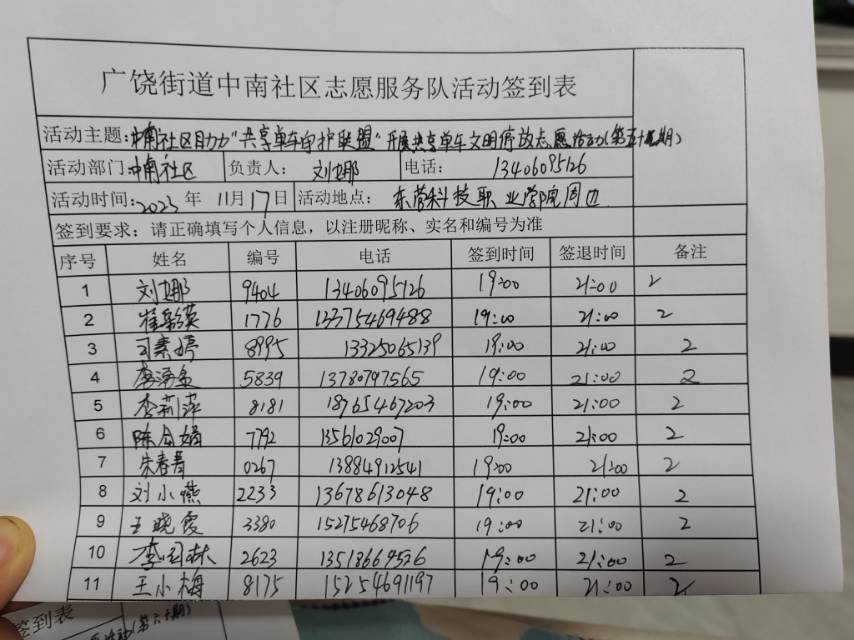 广饶街道中南社区志愿服务队活动签到表
活动主题:中南社区自办"共享单车守护联盟"开展共享单车文明停放志愿活动(第五十期)
活动部门:中南社区 负责人: 刘娜 电话: 13406095126
活动时间:2023 年 11月17日 活动地点: 东营科技职业学院周边
签到要求:请正确填写个人信息,以注册昵称、实名和编号为准
序号 姓名 编号 电话 签到时间 签退时间 备注
1 刘娜 9404 13406095126 19:00 21:00 2
2 1776 13375469488 19:00 21:00 2
3 司素婷 8995 13325065139 19:00 21:00 2
4 5839 13780797565 19:00 21:00 2
5 李莉萍 8181 18765467203 19:00 21:00 2
6 陈 娟 7792 13561029007 19:00 21:00 2
7 朱春青 0267 13884912541 19:00 21:00 2
8 刘小燕 2233 13678613048 19:00 21:00 2
9 王晓霞 3380 15275468706 19:00 21:00 2
10 李 林 2623 13518669536 19:00 21:00 2
11 王小梅 8175 15254691197 19:00 21:00 2
签到表
活动(第六十期)